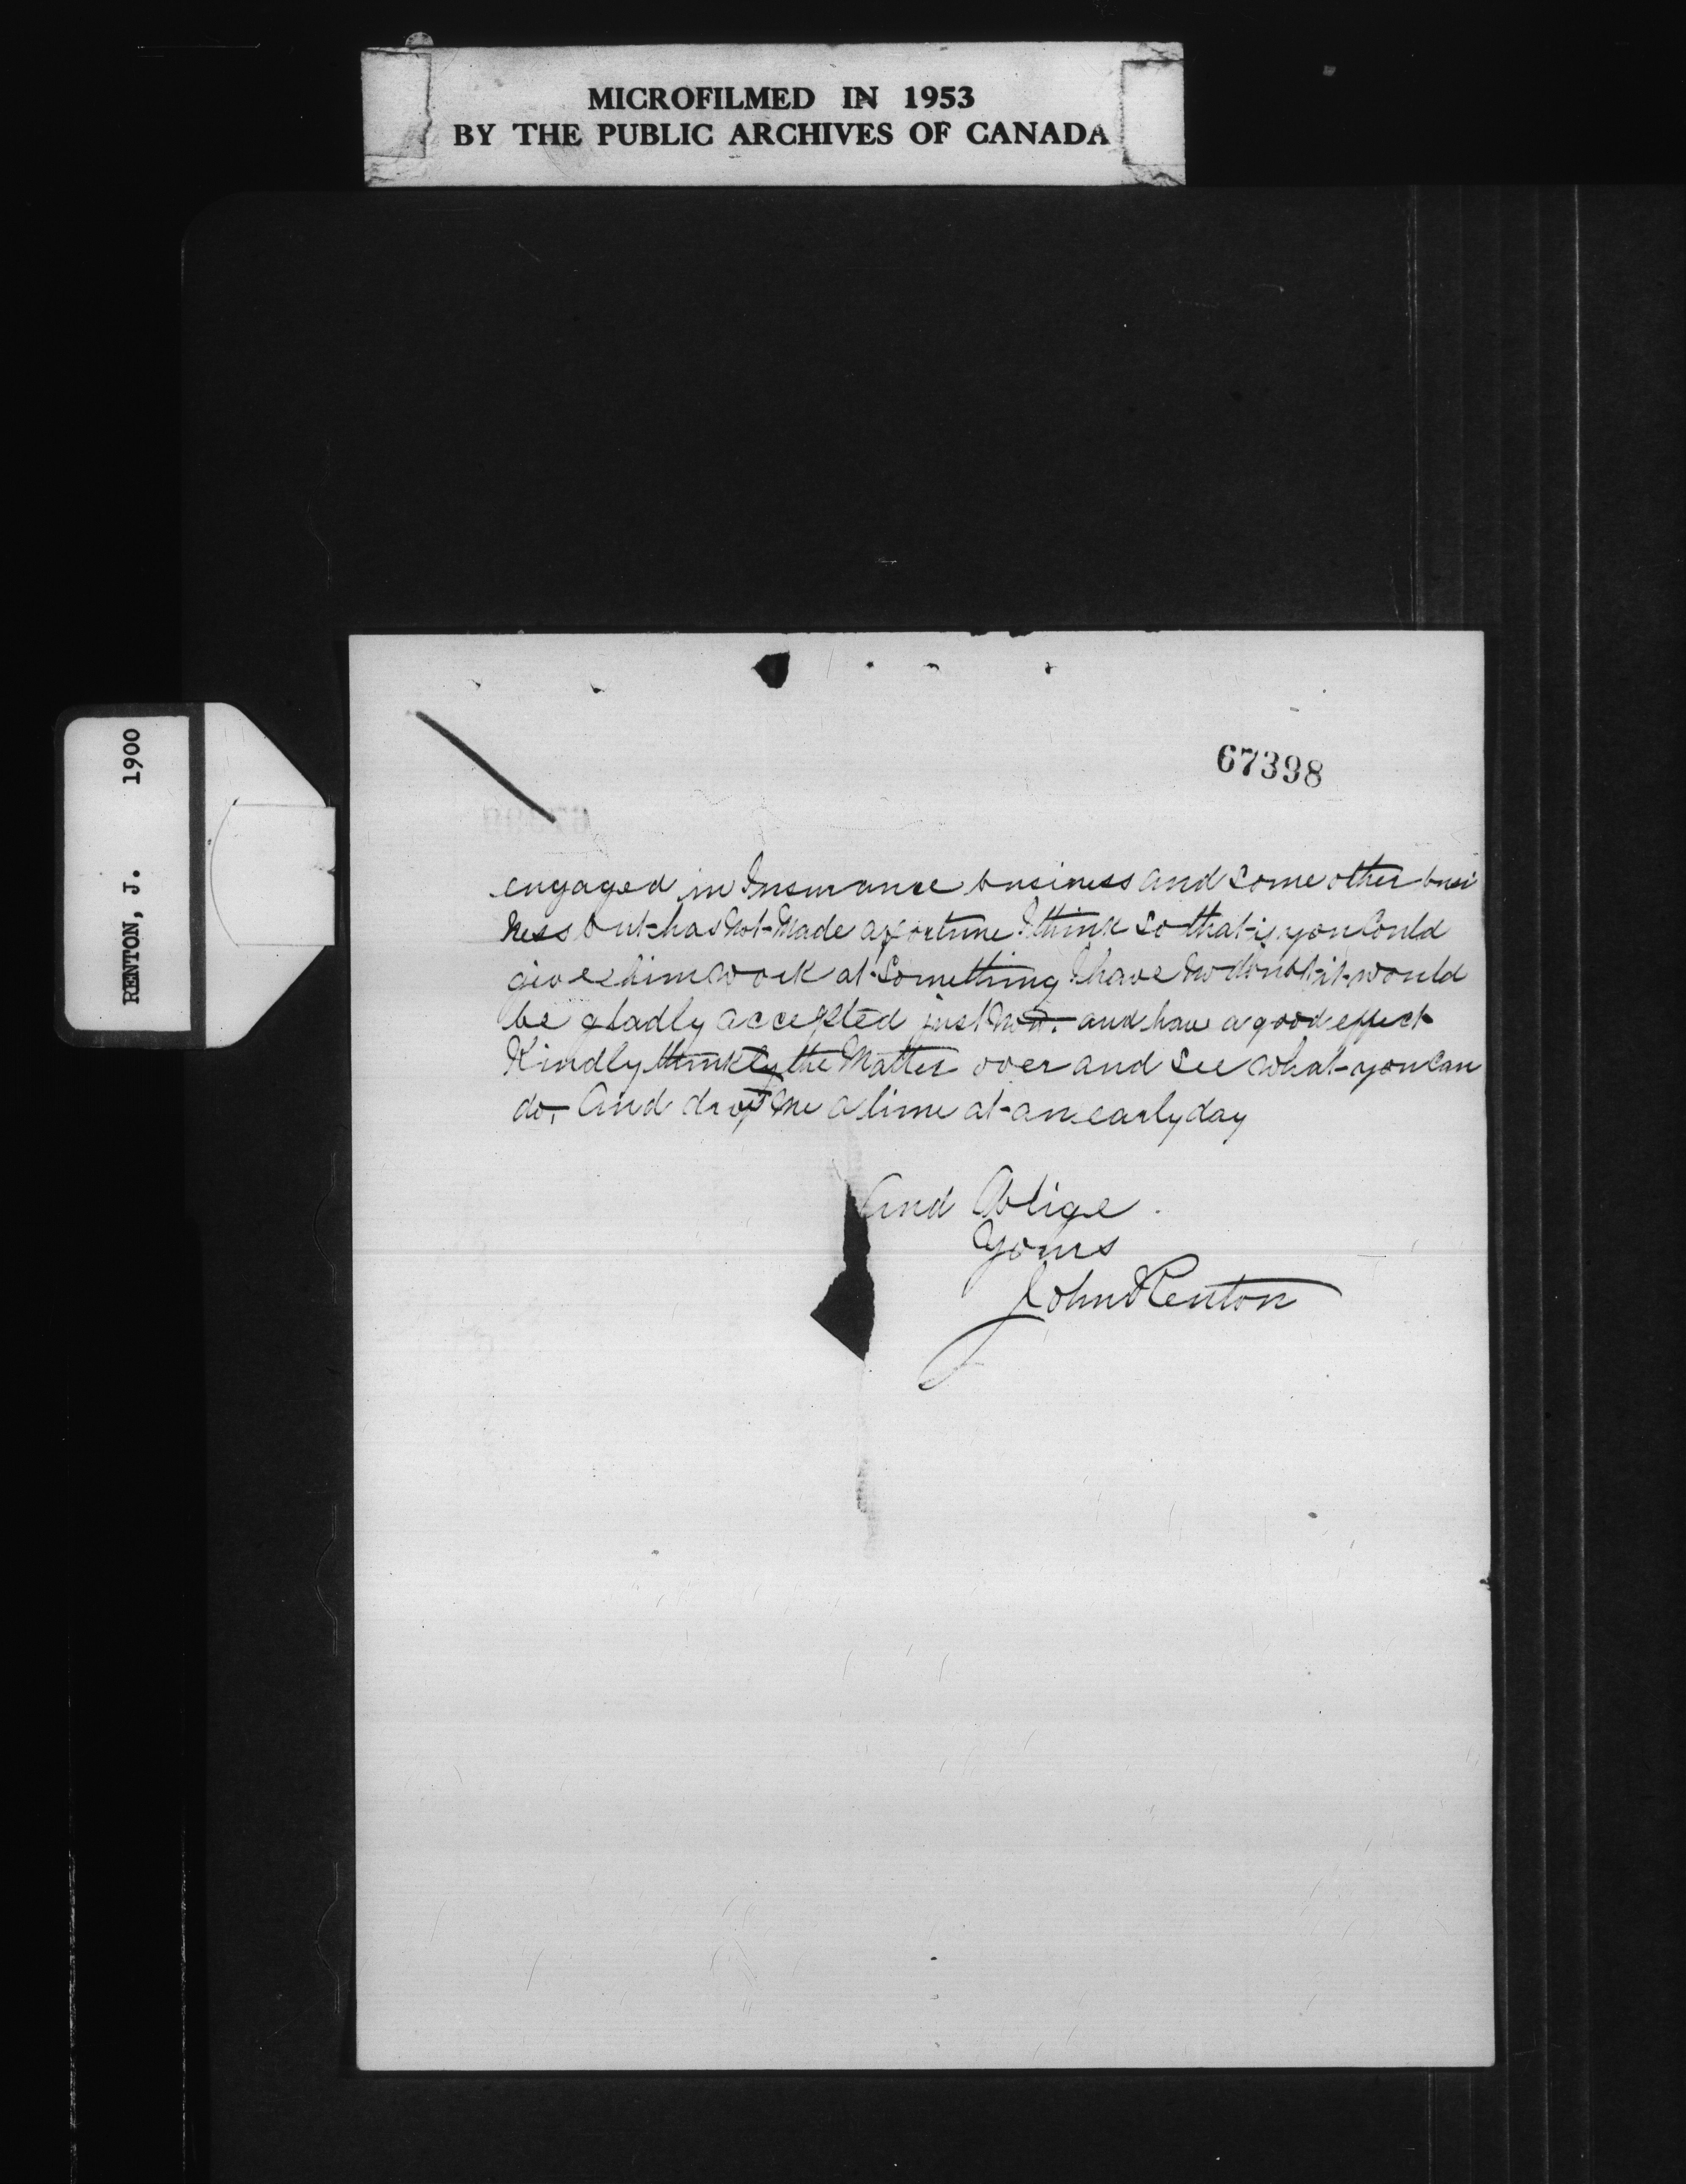 MICROFILMED IN 1953
BY THE PUBLIC ARCHIVES OF CANADA
RENTON, J. 1900
67398
engaged in Insurance business and some other busi
ness but has not made a fortune I think so that if you could
give him work at something I have no doubt it would
be gladly accepted just now. and have a good effect
Kindly think the Matter over and see what you can
do, And drop me a line at an early day
And Oblige.
Yours
John Renton